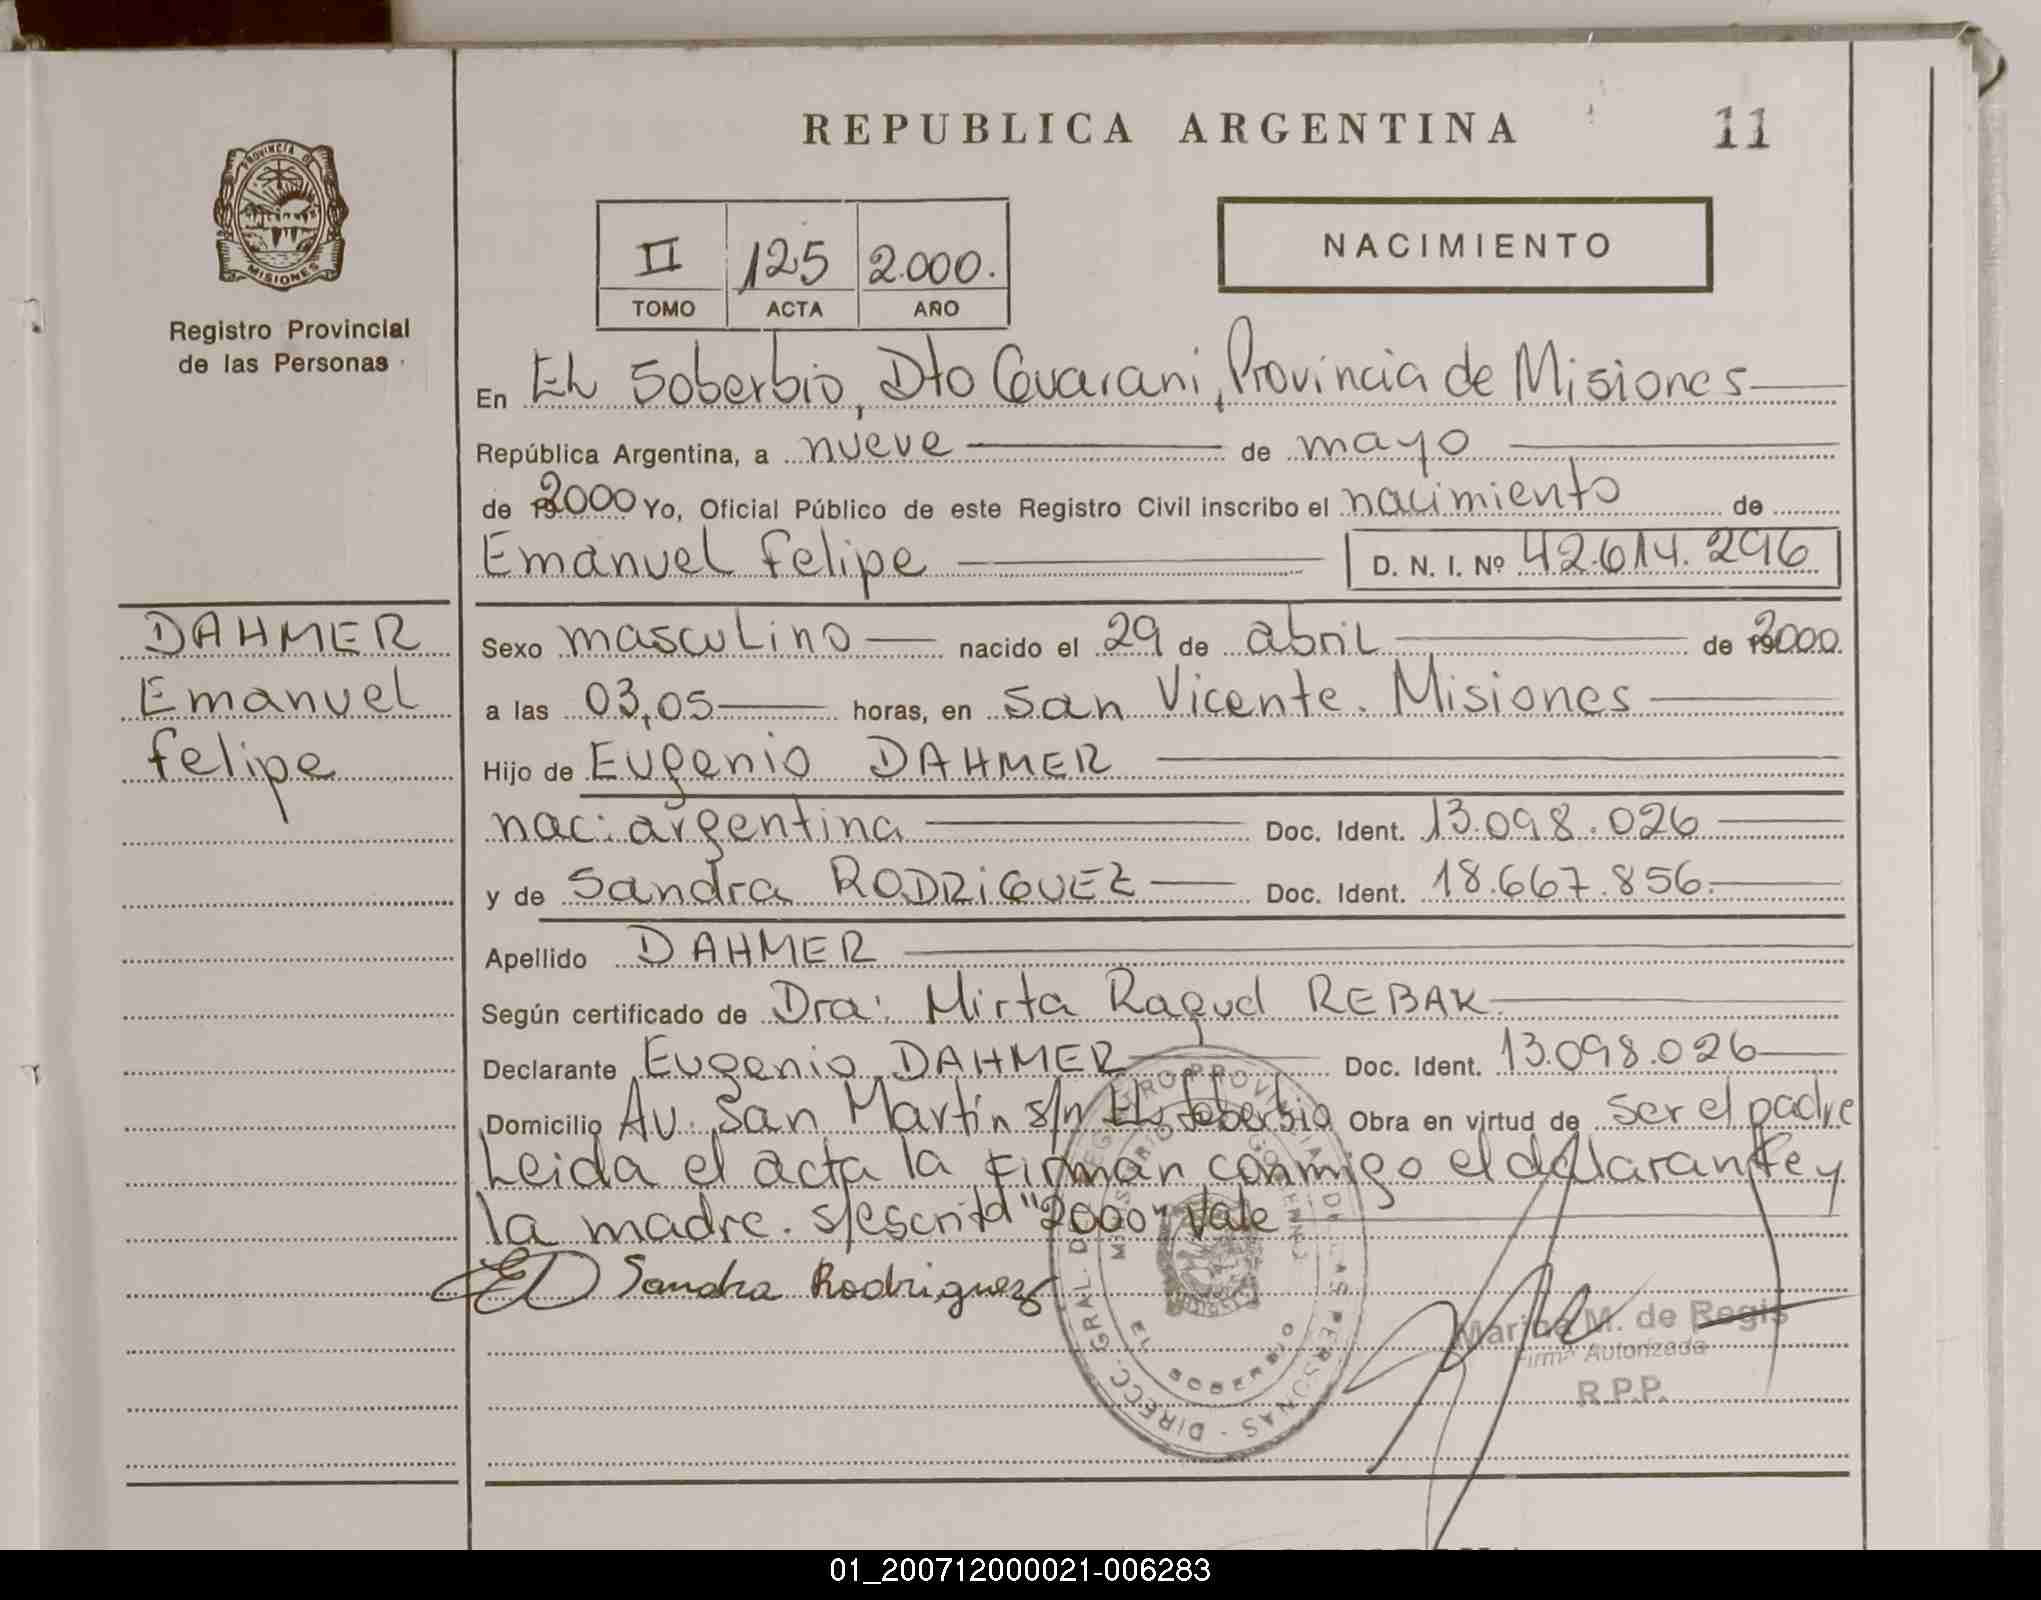 REPUBLICA ARGENTINA
11
PROVINCIA DE
MISIONES
Registro Provincial
de las Personas
II 125 2.000.
TOMO ACTA AÑO
NACIMIENTO
En El Soberbio, Dto Guarani, Provincia de Misiones
República Argentina, a nueve de mayo
de 2000 Yo, Oficial Público de este Registro Civil inscribo el nacimiento de
Emanuel Felipe D. N. I. Nº 42.614.296
DAHMER
Emanuel
Felipe
Sexo masculino nacido el 29 de abril de 2000.
a las 03,05 horas, en San Vicente. Misiones
Hijo de Eugenio DAHMER
nac: argentina Doc. Ident. 13.098.026
y de Sandra RODRIGUEZ Doc. Ident. 18.667.856.
Apellido DAHMER
Según certificado de Dra: Mirta Raquel REBAK
Declarante Eugenio DAHMER Doc. Ident. 13.098.026
Domicilio Av. San Martín s/n El Soberbio Obra en virtud de ser el padre
Leida el acta la firman conmigo el declarante y
la madre. s/escrito "2000" Vale
ED Sandra Rodriguez
DIRECC. GRAL. DE REGISTRO PROVINCIAL DE LAS PERSONAS
SOBERBIO
Marina M. de Regis
Firma Autorizada
R.P.P.
01_200712000021-006283